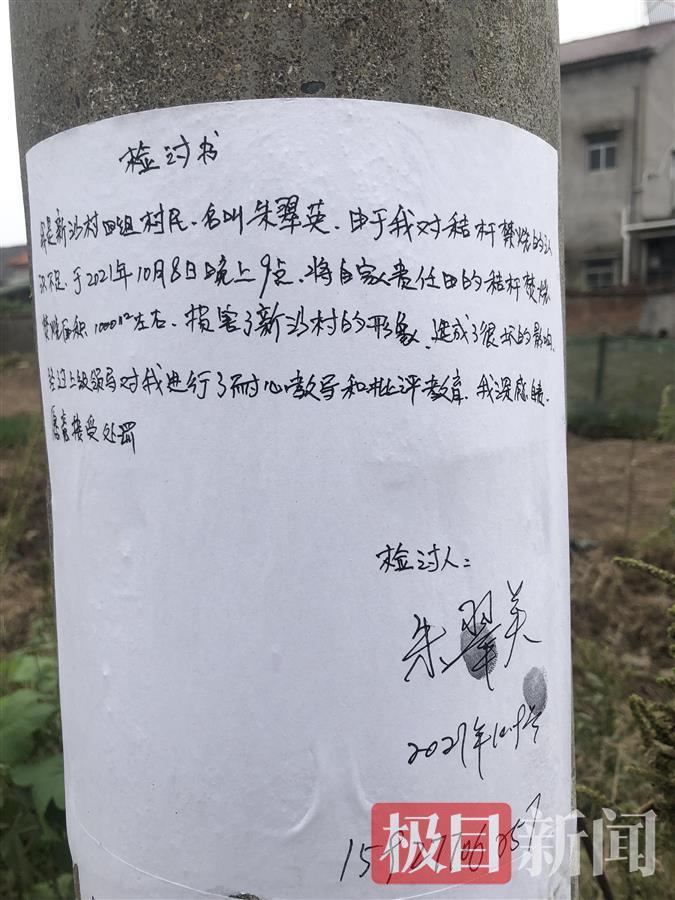 检讨书
我是新沙村四组村民、名叫朱翠英.由于我对秸秆焚烧的认
识不足,于2021年10月8日晚上9点.将自家责任田的秸秆焚烧
焚烧面积1000m²左右.损害了新沙村的形象.造成了很坏的影响.
经过上级领导对我进行了耐心教导和批评教育.我深感自责.
愿意接受处罚
检讨人:
朱翠英
2021年10.9号
极目新闻